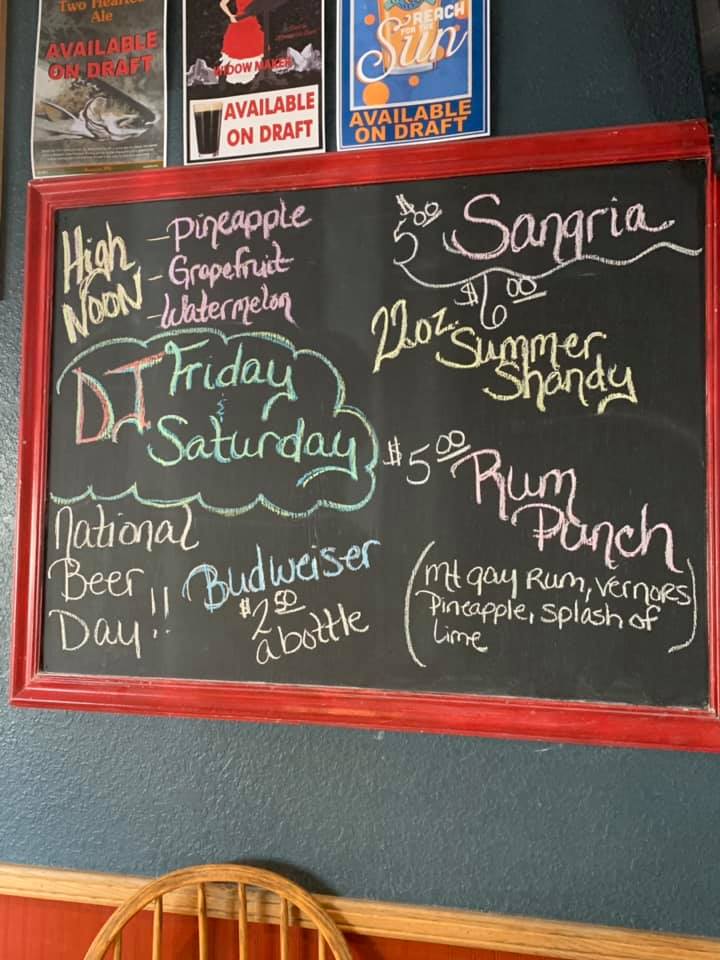 Two Hearted
Ale
AVAILABLE
ON DRAFT
WIDOW MAKER
AVAILABLE
ON DRAFT
REACH
FOR THE
Sun
AVAILABLE
ON DRAFT
High
NOON
- Pineapple
- Grapefruit
- Watermelon
$5.00 Sangria
$6.00
22oz. Summer
Shandy
DJ Friday
&
Saturday
$5.00 Rum
Punch
(Mt gay Rum, Vernors
Pineapple, splash of
Lime)
National
Beer
Day!!
Budweiser
$2.50
a bottle